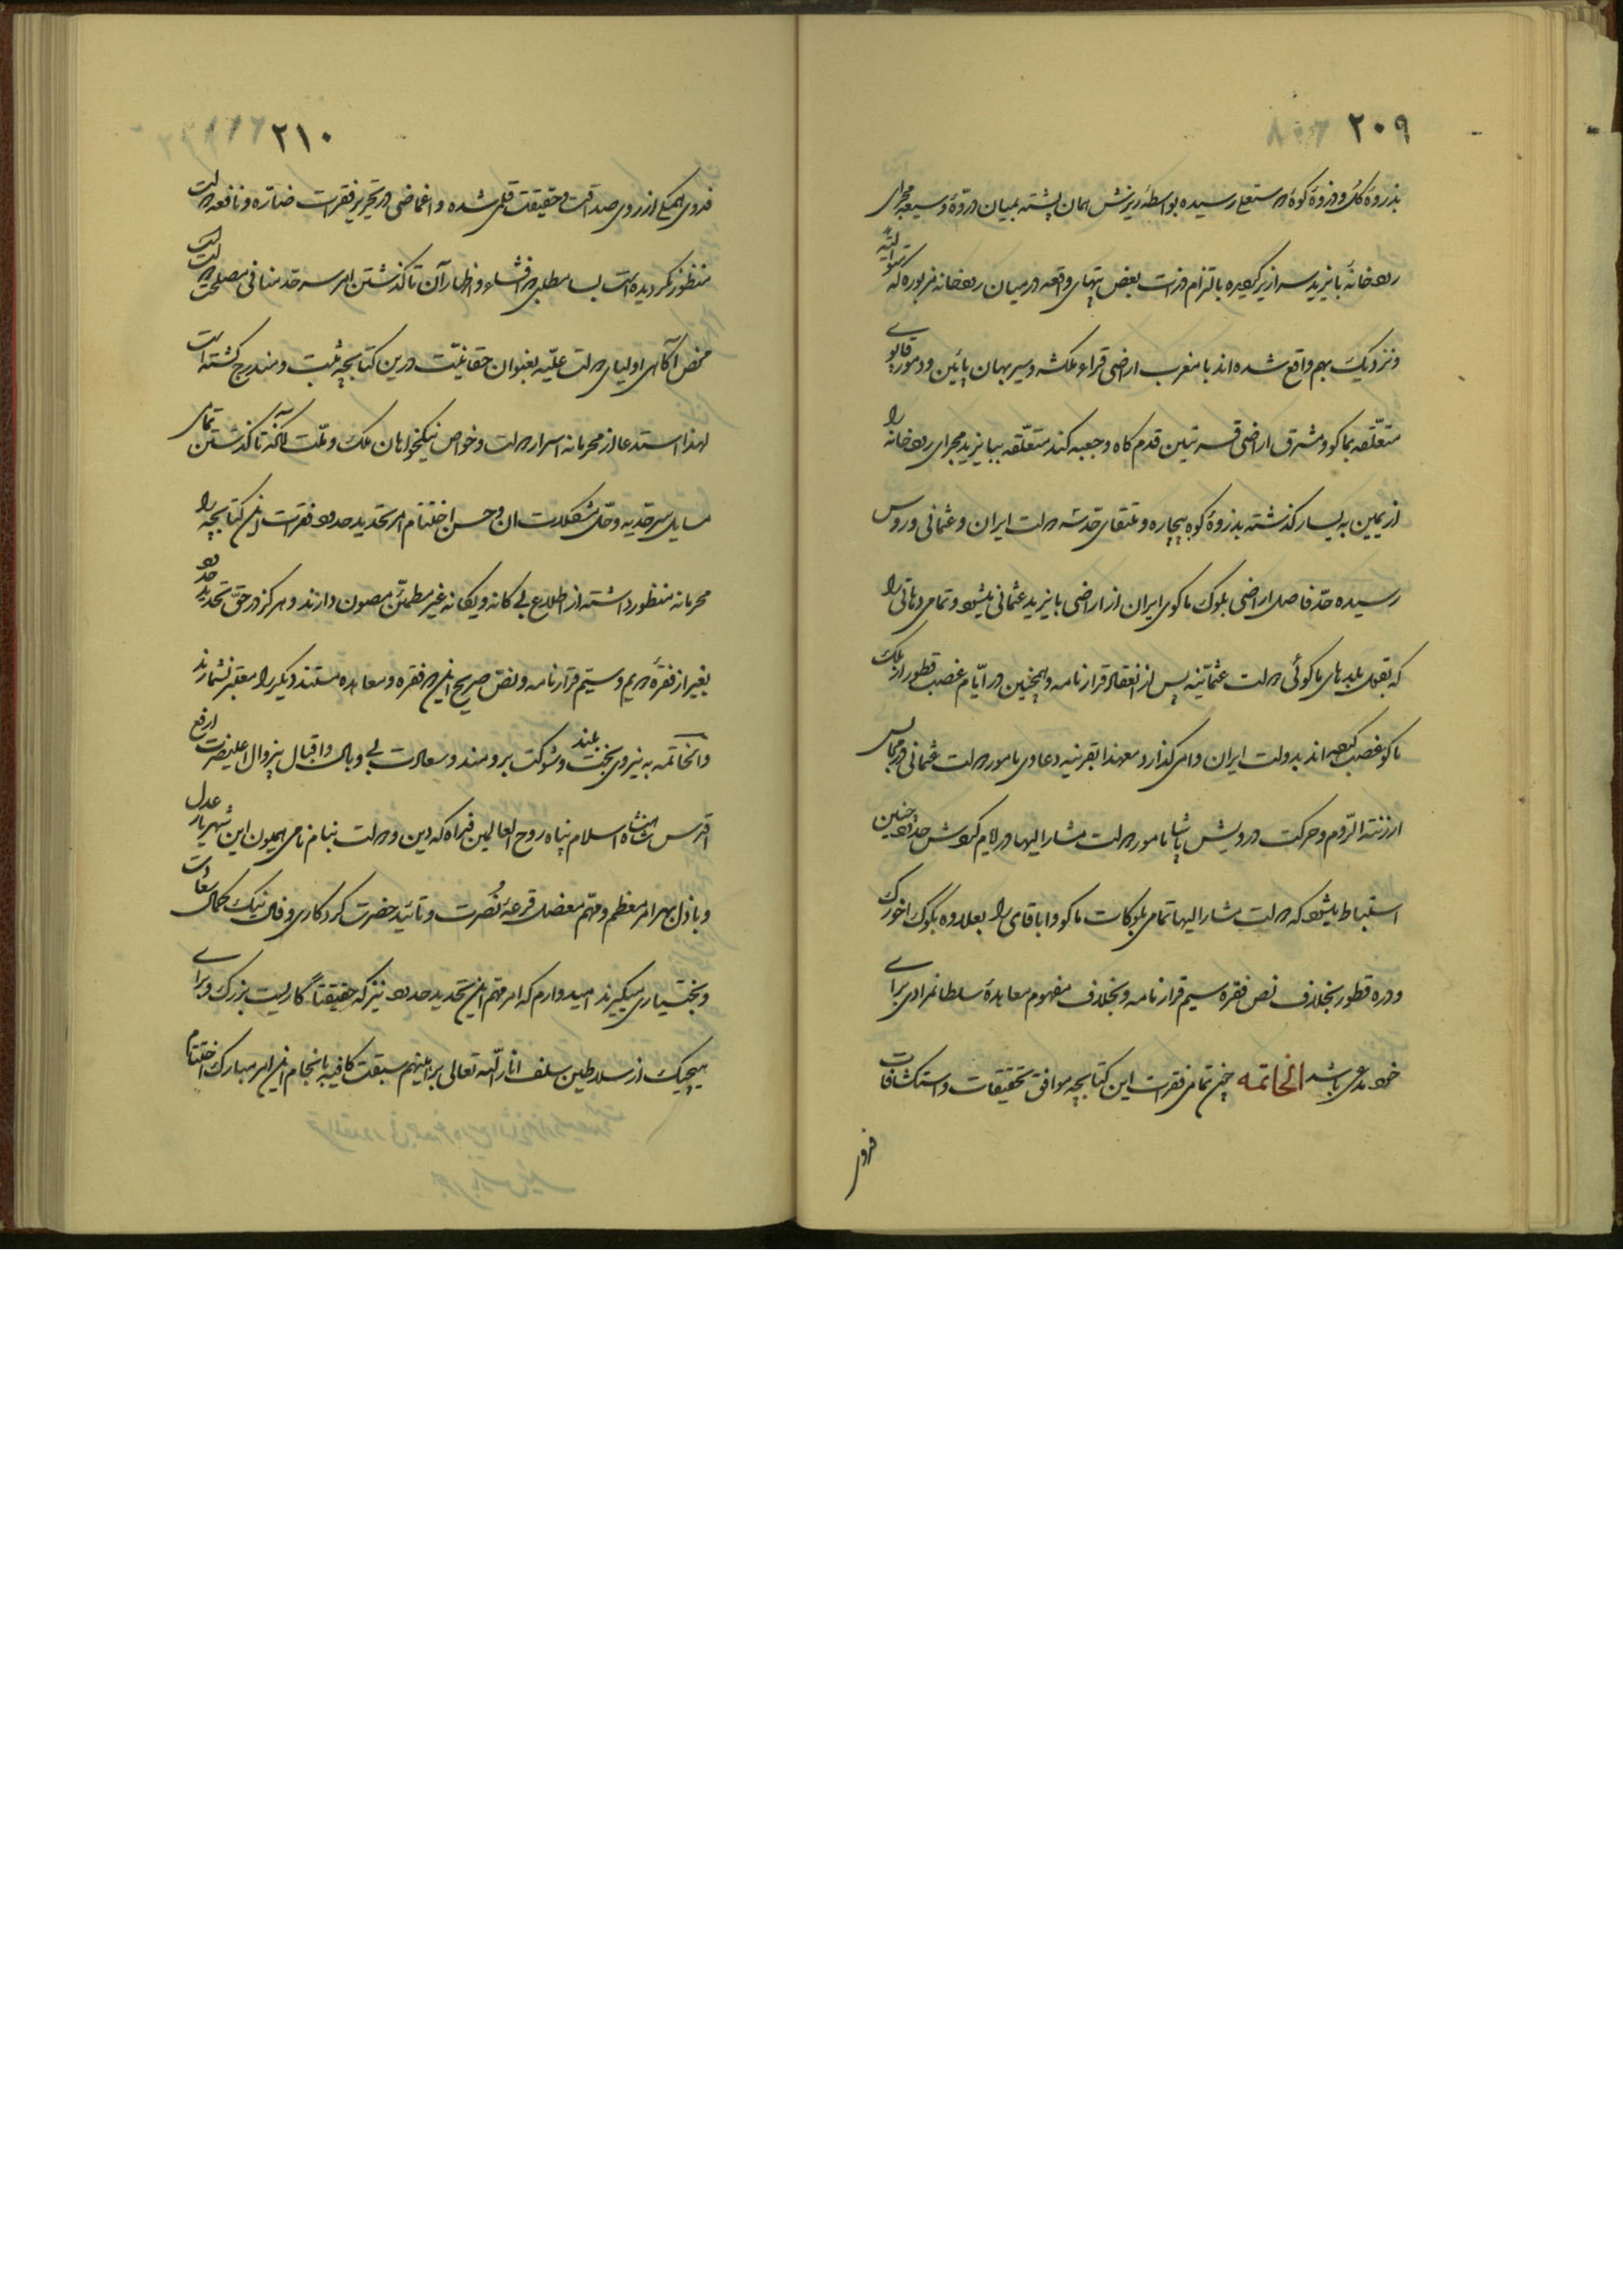 ۲۰۹
بذروهٔ کل و ذروهٔ کوه رسیده بواسطهٔ ریزش همان پشته بمیان دره وسیعه مجرای
رودخانهٔ بایزید سرازیر گردیده بالتزام ذرات بعض تپهای واقعه در میان رودخانه مزبوره که متوالیة
و نزدیک بهم واقع شده‌اند با مغرب اراضی قراء و سیر بهان پائین و
متعلقه بماکو و مشرق اراضی قدم کاه و متعلقه ببایزید مجرای رودخانه را
از یمین به یسار گذشته بذروهٔ کوه و ملتقای حد سه دولت ایران و عثمانی و روس
رسیده حد فاصل اراضی بلوک ماکوی ایران از اراضی بایزید عثمانی میشود و تمامی دهاتی را
که بقول بلدهای ماکوئی دولت عثمانیه پس از انعقاد قرارنامه و همچنین در ایام غصب قطور از ملک
ماکو غصب کرده‌اند بدولت ایران وامی‌گذارد معهذا بقرینه دعاوی مامور دولت عثمانی در مجالس
ارزنة الروم و حرکت درویش پاشا مامور دولت مشار الیها در ایام گردش حدود چنین
استنباط میشود که دولت مشار الیها تمامی بلوکات ماکو و اباقای را بعلاوه بلوک اخورک
و دره قطور بخلاف نص فقره سیم قرارنامه و بخلاف مفهوم معاهدهٔ سلطانمرادی برای
خود مدعی باشد الخاتمه چون تمامی فقرات این کتابچه موافق تحقیقات و استکشافات
فدوی
۲۱۰
فدوی همگی از روی صداقت و حقیقت قلمی شده و اغماضی در تحریر فقرات ضاره و نافعه دولت
منظور نگردیده است بسا مطلبی در افشاء و اظهار آن تا گذشتن امر سرحد منافی مصلحت دولت است
محض آگاهی اولیای دولت علیه بعنوان حقانیت درین کتابچه ثبت و مندرج گشته است
لهذا استدعا از محرمانه اسرار دولت و خواص نیکخواهان ملک و ملت آنکه تا گذشتن تمامی
مسایل سرحدیه و حل مشکلات آن و حسن اختتام امر تحدید حدود فقرات این کتابچه را
محرمانه منظور داشته از اطلاع بیگانه و یگانه غیر مطمئن مصون دارند و هرگز در حق تحدید حدود
بغیر از فقره دویم و سیم قرارنامه و نص صریح این دو فقره و معاهده مستند دیگر را معتبر نشمارند
والخاتمه به نیروی بخت بلند و شوکت برومند و سعادت بی وبال و اقبال بیزوال اعلیحضرت ارفع
اقدس شاهنشاه اسلام پناه روح العالمین فداه که دین و دولت بنام نامی همیون این شهریار عدل
و باذل بهر امر معظم و مهم معضل قرعهٔ نصرت و تائید حضرت کردگاری و فال نیک کمال سعادت
و بختیاری میگیرند امیدوارم که امر مهم این تحدید حدود نیز که حقیقتاً کاریست بزرگ و برای
هیچیک از سلاطین سلف انار الله تعالی براهینهم سبقت کافیه بانجام این امر مبارک اختتام